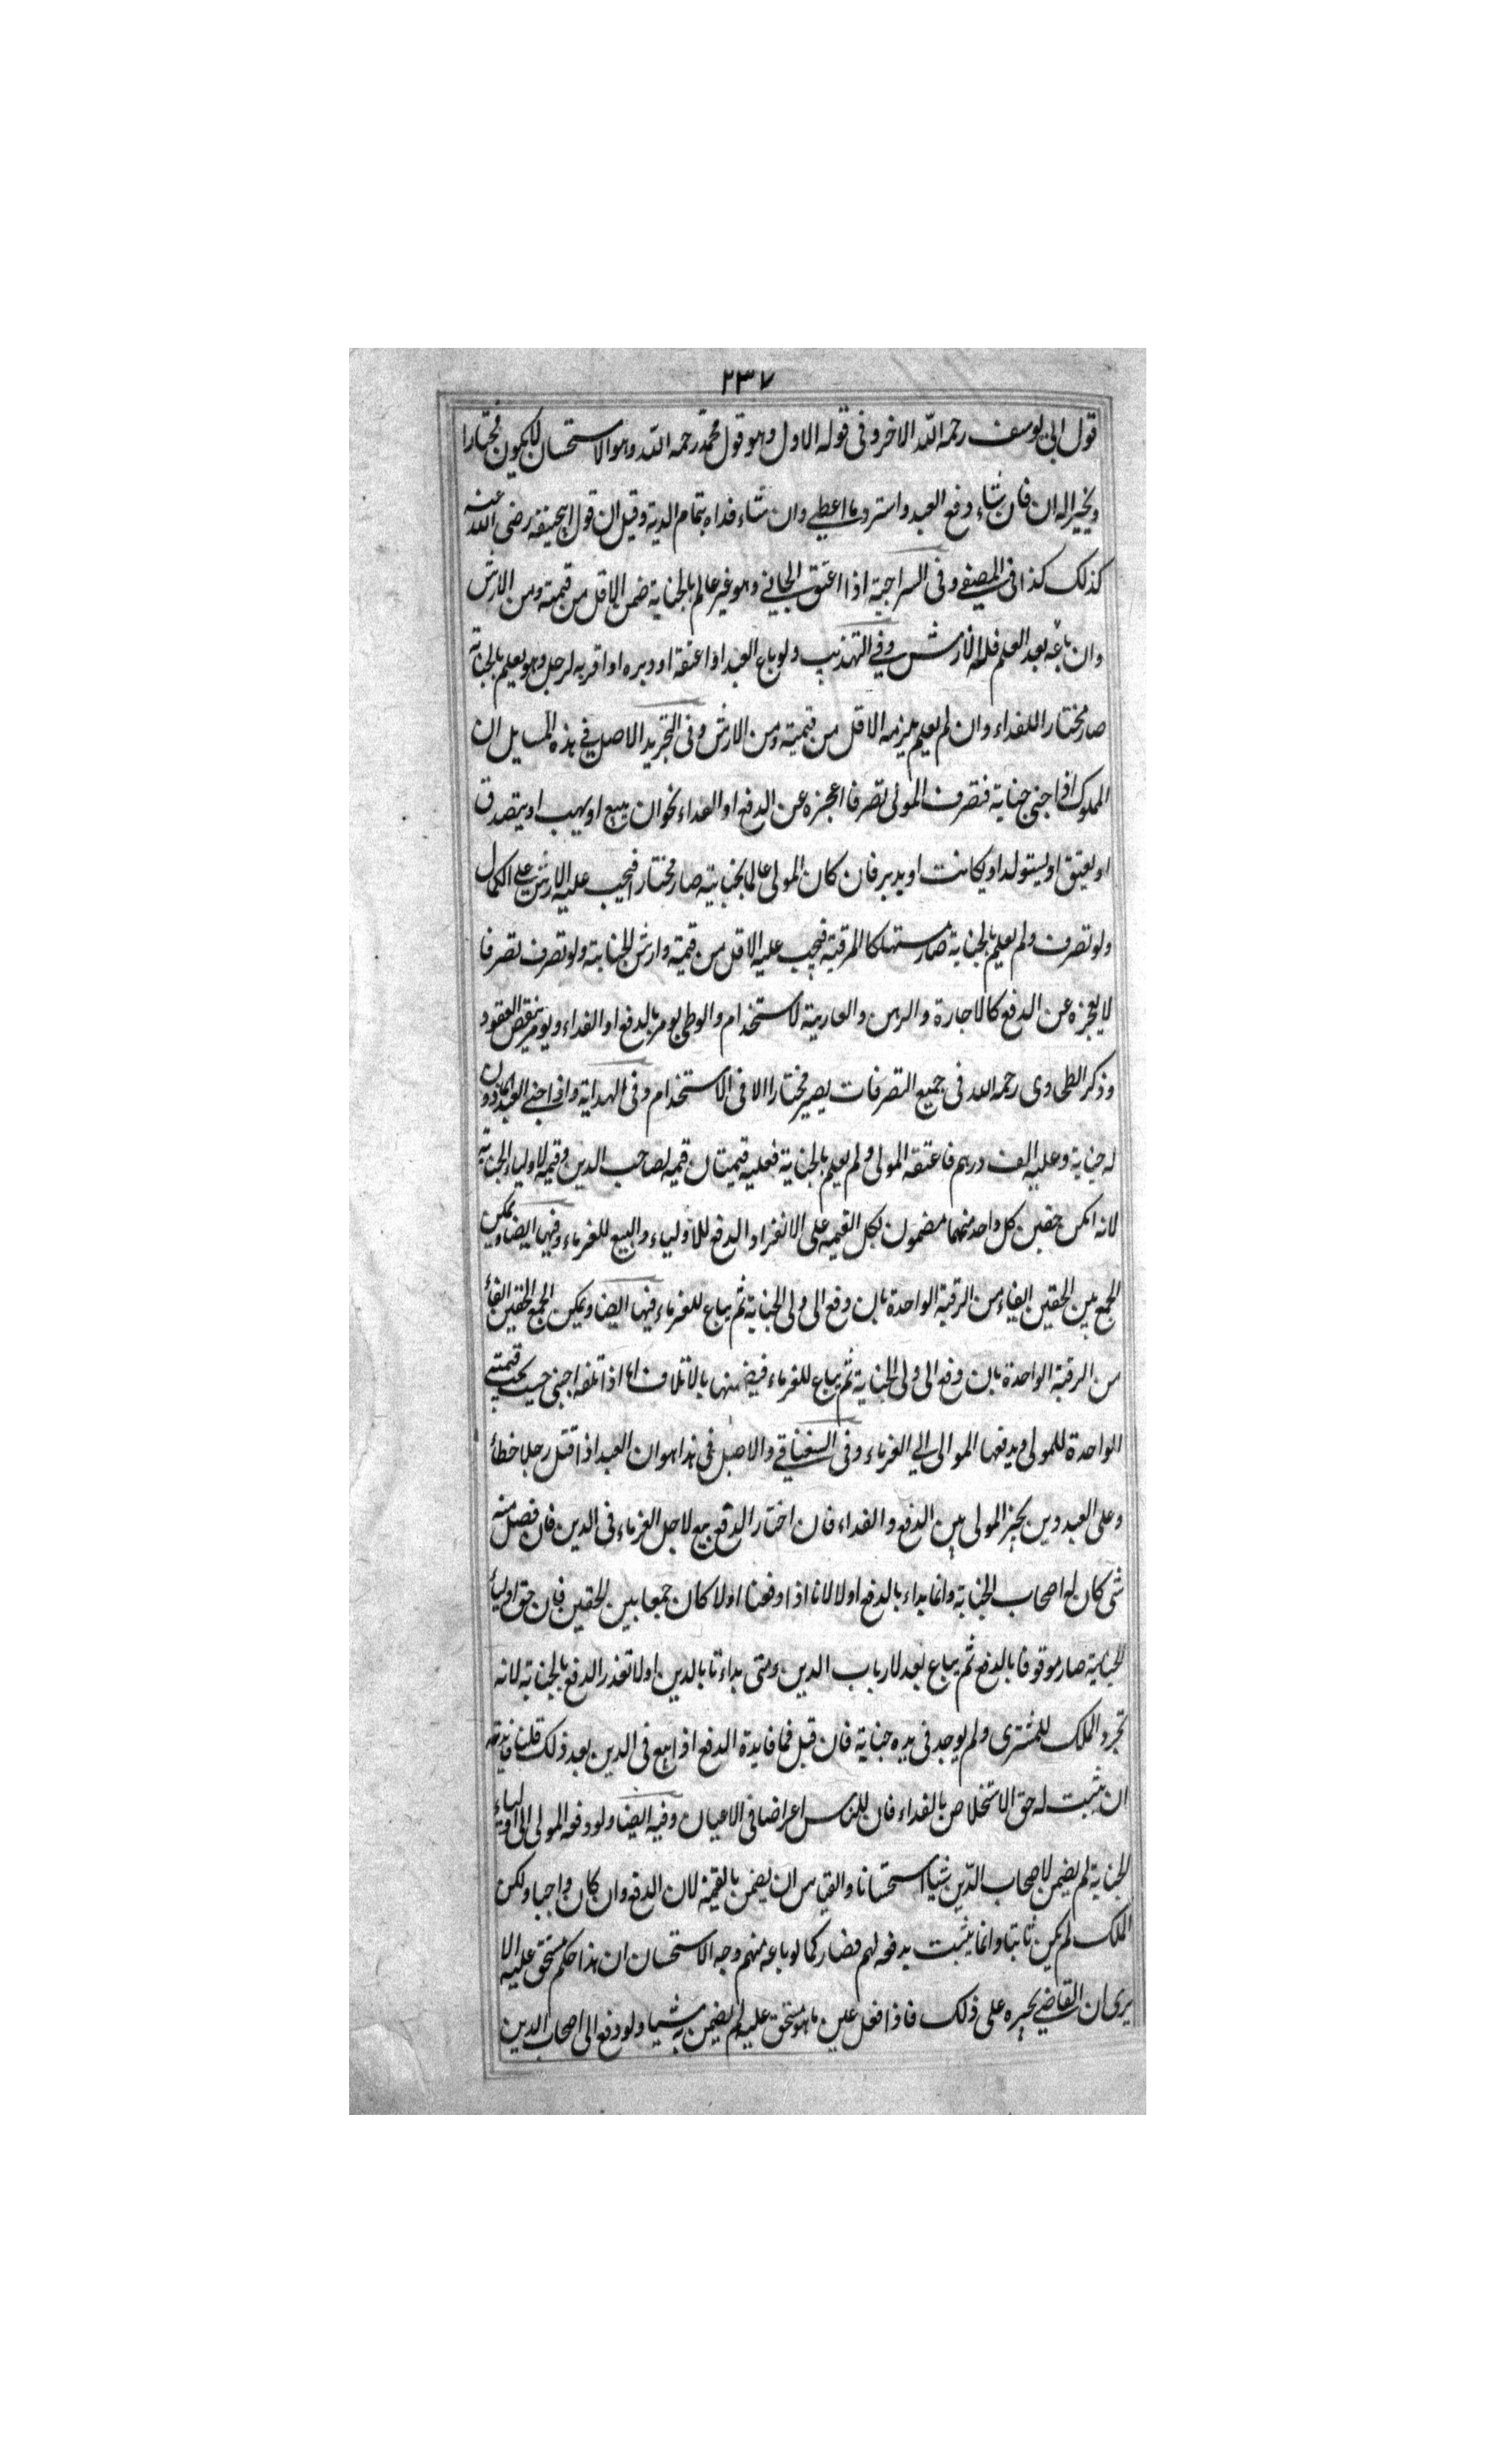 ٢٣٧
قول ابى يوسف رحمه الله الاخر وفى قوله الاول وهو قول محمد رحمه الله وهو الاستحسان لايكون مختارا
ويخير اله ان فان شاء دفع العبد واسترد ما اعطى وان شاء فداه بتمام الدية وقيل ان قول ابيحنيفه رضى الله عنه
كذلك كذا فى المصفى وفى السراجية اذا اعتق الجانى وهو غير عالم بالجناية ضمن الاقل من قيمته ومن الارش
وان باعه بعد العلم فله الارش وفى التهذيب ولو باع العبد او اعتقه او دبره او اقر به لرجل وهو يعلم بالجناية
صار مختارا للفداء وان لم يعلم يلزمه الاقل من قيمته ومن الارش وفى التجريد الاصل فى هذه المسايل ان
المملوك اذا جنى جناية فتصرف المولى تصرفا اعجزه عن الدفع او الفداء نحو ان يبيع او يهب او يتصدق
او يعتق او يستولد او يكاتب او يدبر فان كان المولى عالما بجنايته صار مختارا فيجب عليه الارش على الكمال
ولو تصرف ولم يعلم بالجناية صار مستهلكا للرقبة فيجب عليه الاقل من قيمته وارش الجناية ولو تصرف تصرفا
لا يعجزه عن الدفع كالاجارة والرهن والعارية لاستخدام والوطى يومر بالدفع او الفداء ويومر بنقض العقود
وذكر الطحاوى رحمه الله فى جميع التصرفات يصير مختارا الا فى الاستخدام وفى الهداية واذا جنى العبد الماذون
له جناية وعليه الف درهم فاعتقه المولى ولم يعلم بالجناية فعليه قيمتان قيمه لصاحب الدين وقيمه لاولياء الجناية
لانه اتكن حقين كل واحد منهما مضمون بكل القيمه على الانفراد الدفع للاولياء والبيع للغرماء وفيها ايضا ويمكن
الجمع بين الحقين ايفاء من الرقبة الواحدة بان دفع الى ولى الجناية ثم يباع للغرماء فيها ايضا ويمكن الجمع الحقين ايفاء
من الرقبة الواحدة بان دفع الى ولى الجناية ثم يباع للغرماء فيضمنها بالاتلاف اما اذا تلفه اجنبى حيث يجب قيمته
الواحدة للمولى ويدفعها الموالى الى الغرماء وفى السغناقى والاصل فى هذا هو ان العبد اذا قتل رجلا خطأ
وعلى العبد دين يخير المولى بين الدفع والفداء فان اختار الدفع بيع لاجل الغرماء فى الدين فان فضل منه
شى كان له اصحاب الجناية وانما بداء بالدفع اولا لانا اذا دفعنا اولا كان جمعا بين الحقين فان حق اولياء
الجناية صار موقوفا بالدفع ثم يباع بعد لارباب الدين ومتى بداءنا بالدين اولا تعذر الدفع بالجناية لانه
تجرد الملك للمشترى ولم يوجد فى يده جناية فان قيل فما فايدة الدفع اذا بيع فى الدين بعد ذلك قلنا فايدته
ان يثبت له حق الاستخلاص بالفداء فان للناس اعراضا فى الاعيان وفيه ايضا ولو دفعه المولى الى اولياء
الجناية لم يضمن لاصحاب الدين شيا استحسانا والقياس ان يضمن بالقيمة لان الدفع وان كان واجبا ولكن
الملك لم يكن ثابتا وانما يثبت بدفعه لهم فصار كما لو باعه منهم وجه الاستحسان ان هذا حكم مستحق عليه الا
يرى ان القاضى يجبره على ذلك فاذا فعل عين ما هو مستحق عليه لم يضمن به شيا ولو دفع الى اصحاب الدين